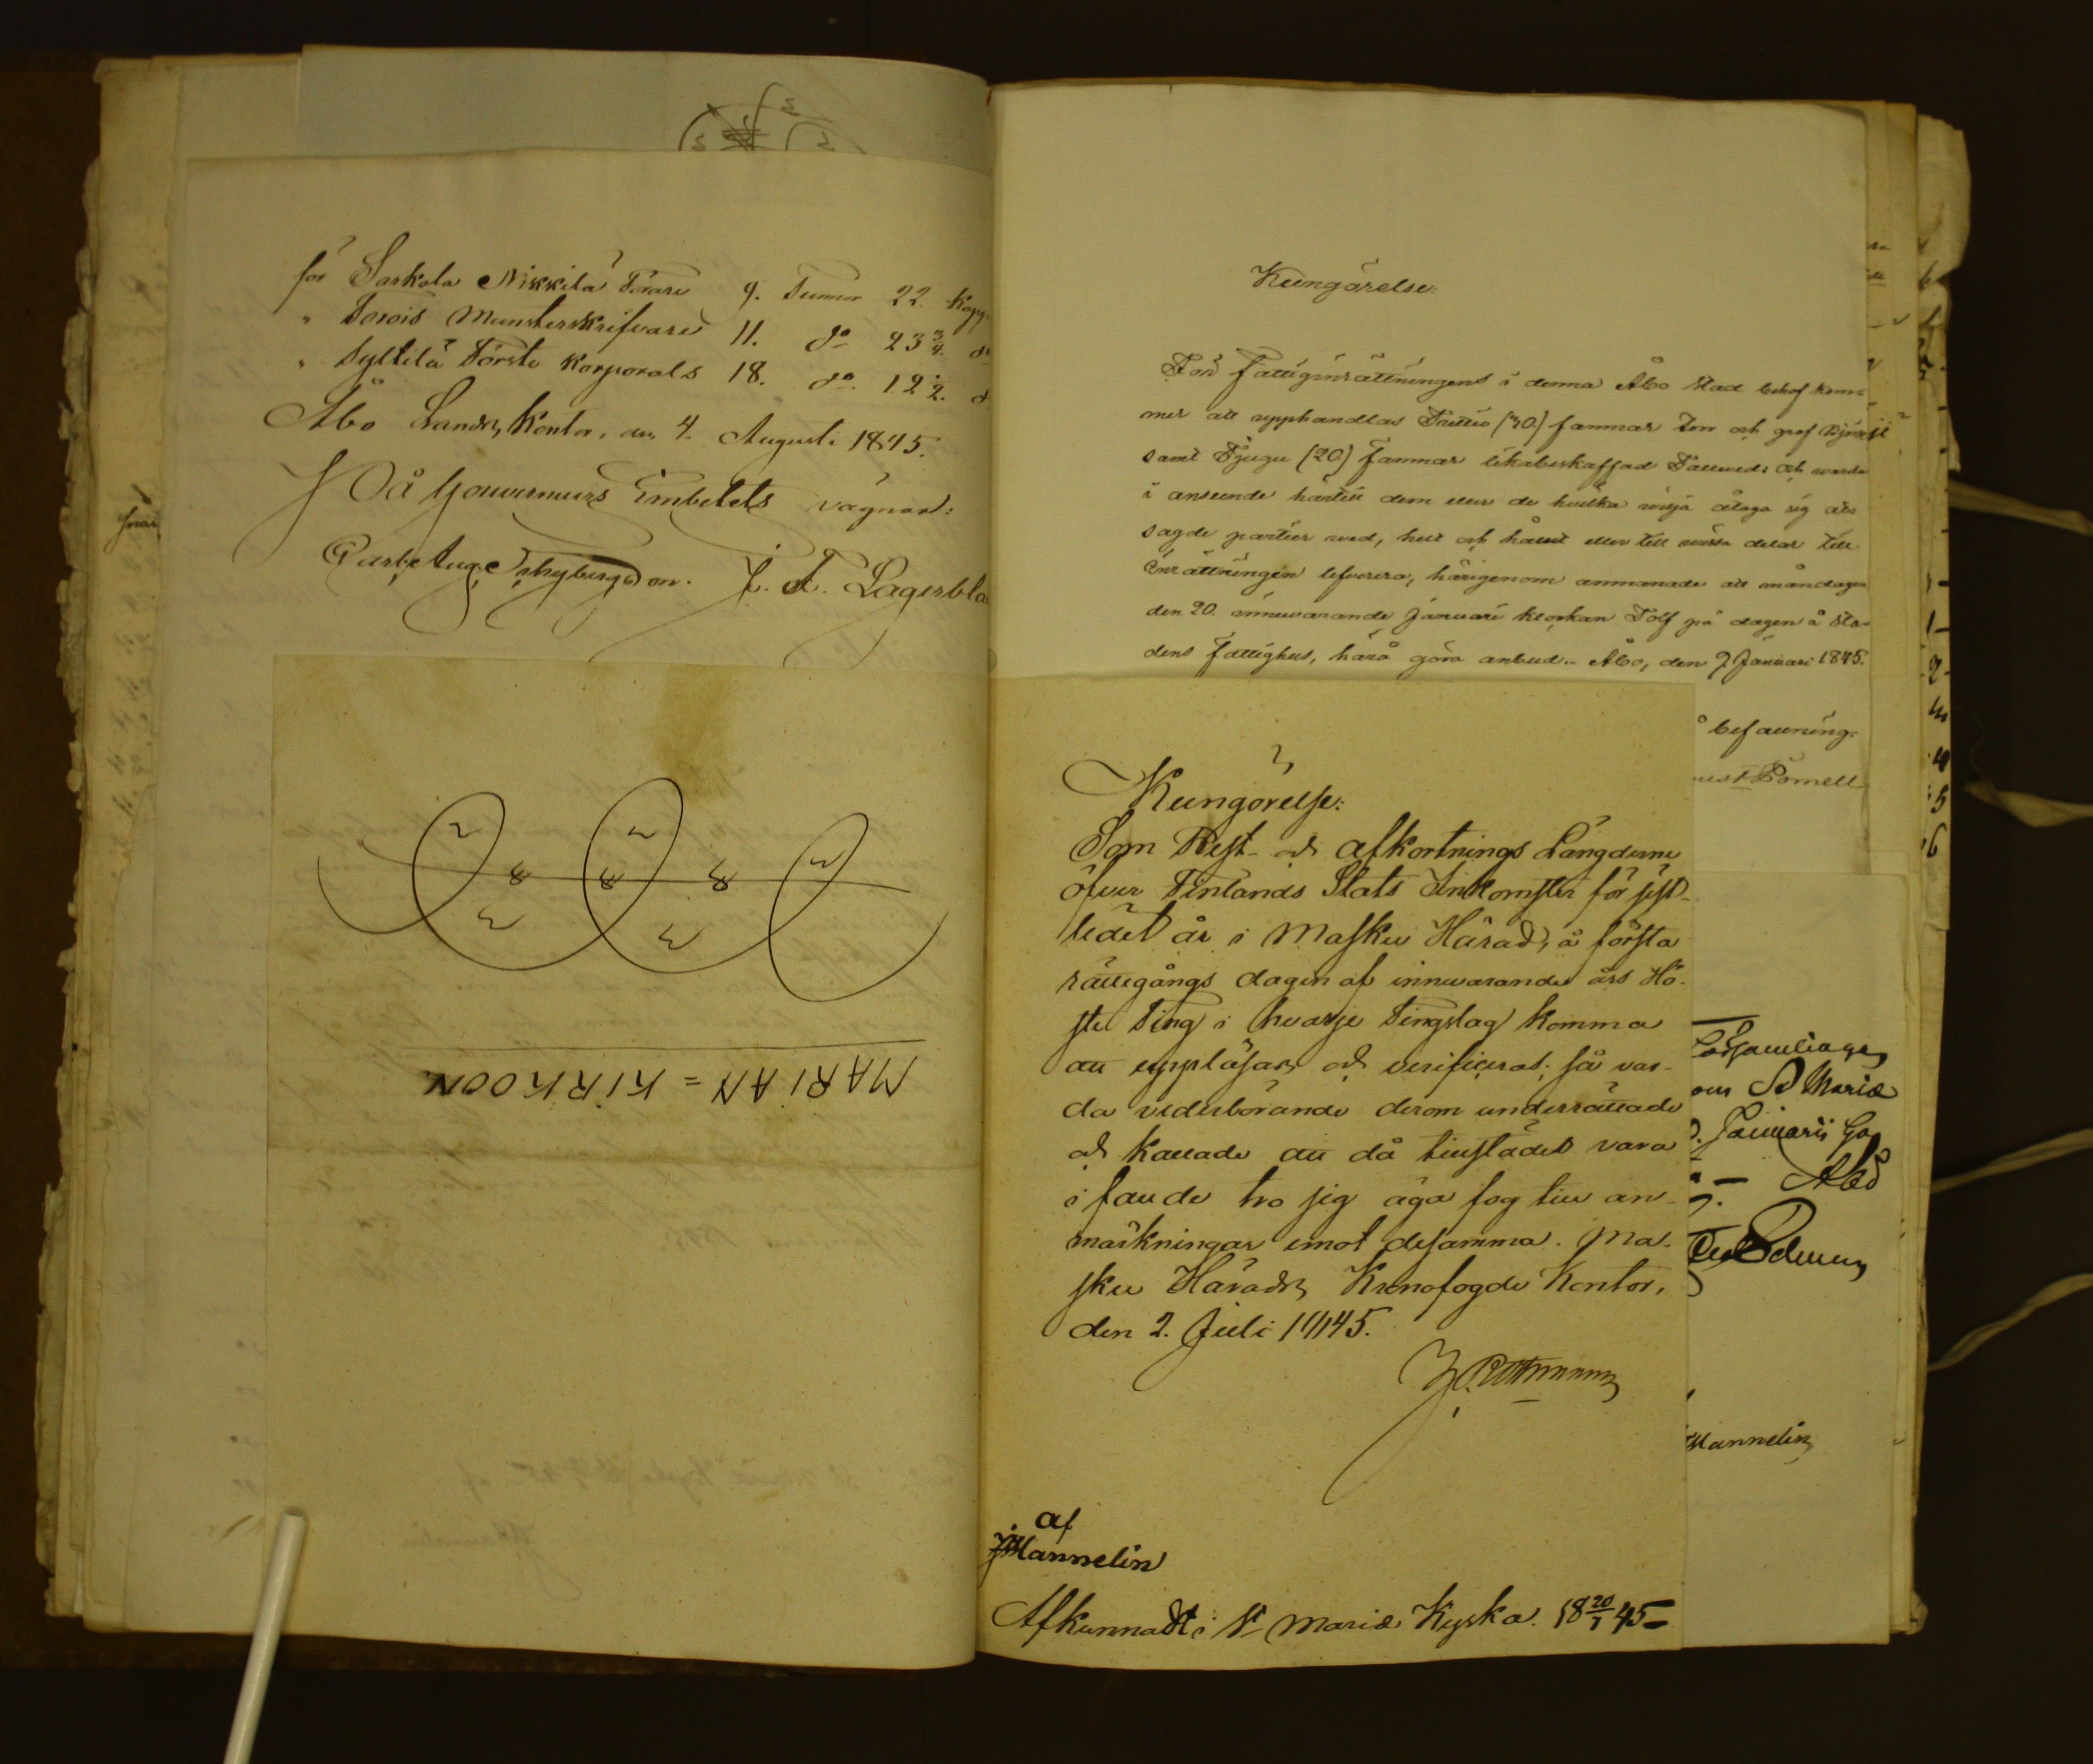 för Sarkola Nikkilä Förare 9. Tunnor 22. Kapp
" Torois Munsterskrifvare 11. do 23 3/4. d
" Syltilä Förste Korporals 18. do 12 1/2. d
Åbo Lands Kontor, den 4. Augusti 1845.
På Gouverneurs Embetets vägnar:
J. A. Lagerbla
MARIAN=KIRKOON
Kungörelse:
För Fattiginrättningens i denna Åbo Stad behof kom-
mer att upphandlas Trettio (30) famnar torr och grof Björk
samt Tjugu (20) famnar likabeskaffad Talleved; och warda
i anseende härtill dem eller de hvilka vilja åtaga sig att
sagde partier ved, helt och hållet eller till vissa delar till
Inrättningen lefverera, härigenom anmanade att måndagen
den 20. innevarande Januari klockan Tolf på dagen å Sta-
dens fattighus, härå göra anbud. Åbo, den 7 Januari 1845.
befallning:
Kungörelse:
Som Rest- och Afkortnings Längderne
öfver Finlands Stats Inkomster för sist-
ledet år i Masku Härad, å första
rättegångs dagen af innevarande års Hö-
ste Ting i hvarje Tingslag komma
att uppläsas och verificeras; så var-
da vederbörande derom underrättade
och kallade att då tillstädes vara
i fall de tro sig äga fog till an-
märkningar emot desamma. Ma-
sku Härads Kronofogde Kontor,
den 2. Juli 1845.
af
Mannelin
Afkunnadt i St Mariæ Kyrka. 18 20/7 45
St Mariæ
Januarii
Åbo
Mannelin